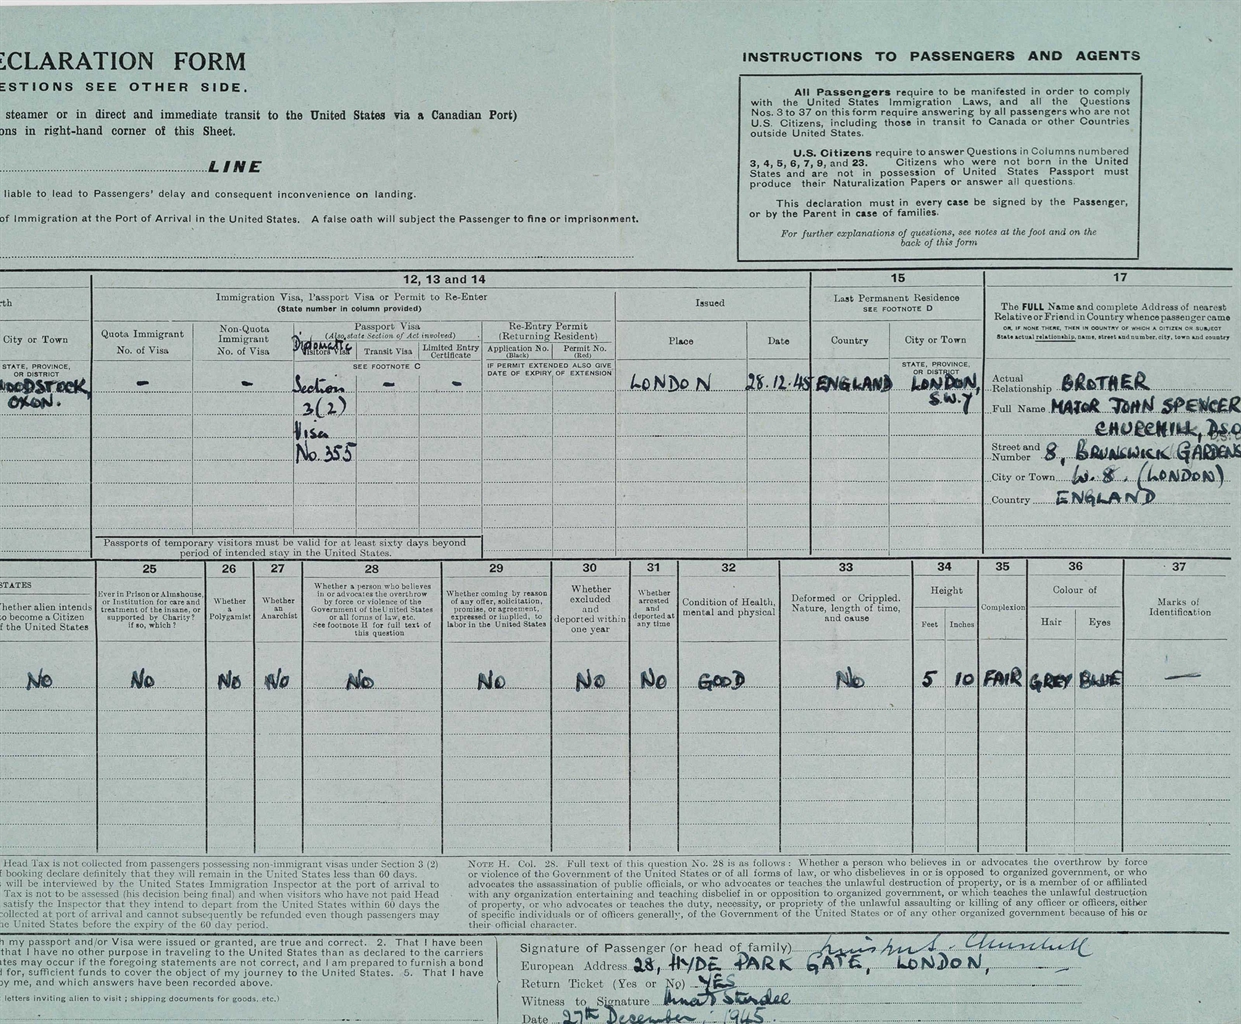 ECLARATION FORM
ESTIONS SEE OTHER SIDE.
steamer or in direct and immediate transit to the United States via a Canadian Port)
ons in right-hand corner of this Sheet.
LINE
liable to lead to Passengers' delay and consequent inconvenience on landing.
of Immigration at the Port of Arrival in the United States. A false oath will subject the Passenger to fine or imprisonment.
INSTRUCTIONS TO PASSENGERS AND AGENTS
All Passengers require to be manifested in order to comply
with the United States Immigration Laws, and all the Questions
Nos. 3 to 37 on this form require answering by all passengers who are not
U.S. Citizens, including those in transit to Canada or other Countries
outside United States.
U.S. Citizens require to answer Questions in Columns numbered
3, 4, 5, 6, 7, 9, and 23. Citizens who were not born in the United
States and are not in possession of United States Passport must
produce their Naturalization Papers or answer all questions.
This declaration must in every case be signed by the Passenger,
or by the Parent in case of families.
For further explanations of questions, see notes at the foot and on the
back of this form
rth
City or Town
STATE, PROVINCE,
OR DISTRICT
WOODSTOCK,
OXON.
12, 13 and 14
Immigration Visa, Passport Visa or Permit to Re-Enter
(State number in column provided)
Quota Immigrant
No. of Visa
-
Non-Quota
Immigrant
No. of Visa
-
Passport Visa
(Also state Section of Act involved)
Diplomatic
Visitors Visa
Transit Visa
Limited Entry
Certificate
SEE FOOTNOTE C
Section
3(2)
Visa
No. 355
-
-
Re-Entry Permit
(Returning Resident)
Application No.
(Black)
Permit No.
(Red)
IF PERMIT EXTENDED ALSO GIVE
DATE OF EXPIRY OF EXTENSION
Passports of temporary visitors must be valid for at least sixty days beyond
period of intended stay in the United States.
Issued
Place
Date
LONDON
28.12.45
15
Last Permanent Residence
SEE FOOTNOTE D
Country
City or Town
STATE, PROVINCE,
OR DISTRICT
ENGLAND
LONDON,
S.W.7
17
The FULL Name and complete Address of nearest
Relative or Friend in Country whence passenger came
OR, IF NONE THERE, THEN IN COUNTRY OF WHICH A CITIZEN OR SUBJECT
State actual relationship, name, street and number, city, town and country
Actual
Relationship BROTHER
Full Name MAJOR JOHN SPENCER
CHURCHILL, D.S.O.
Street and
Number 8, BRUNSWICK GARDENS
City or Town W.8. (LONDON)
Country ENGLAND
STATES
hether alien intends
to become a Citizen
f the United States
NO
25
Ever in Prison or Almshouse,
or Institution for care and
treatment of the insane, or
supported by Charity?
if so, which?
NO
26
Whether
a
Polygamist
NO
27
Whether
an
Anarchist
NO
28
Whether a person who believes
in or advocates the overthrow
by force or violence of the
Government of the United States
or all forms of law, etc.
See footnote H for full text of
this question
NO
29
Whether coming by reason
of any offer, solicitation,
promise, or agreement,
expressed or implied, to
labor in the United States
NO
30
Whether
excluded
and
deported within
one year
NO
31
Whether
arrested
and
deported at
any time
NO
32
Condition of Health,
mental and physical
GOOD
33
Deformed or Crippled.
Nature, length of time,
and cause
NO
34
Height
Feet
Inches
5
10
35
Complexion
FAIR
36
Colour of
Hair
Eyes
GREY
BLUE
37
Marks of
Identification
—
Head Tax is not collected from passengers possessing non-immigrant visas under Section 3 (2)
f booking declare definitely that they will remain in the United States less than 60 days.
will be interviewed by the United States Immigration Inspector at the port of arrival to
Tax is not to be assessed (his decision being final) and when visitors who have not paid Head
satisfy the Inspector that they intend to depart from the United States within 60 days the
collected at port of arrival and cannot subsequently be refunded even though passengers may
he United States before the expiry of the 60 day period.
NOTE H. Col. 28. Full text of this question No. 28 is as follows: Whether a person who believes in or advocates the overthrow by force
or violence of the Government of the United States or of all forms of law, or who disbelieves in or is opposed to organized government, or who
advocates the assassination of public officials, or who advocates or teaches the unlawful destruction of property, or is a member of or affiliated
with any organization entertaining and teaching disbelief in or opposition to organized government, or which teaches the unlawful destruction
of property, or who advocates or teaches the duty, necessity, or propriety of the unlawful assaulting or killing of any officer or officers, either
of specific individuals or of officers generally, of the Government of the United States or of any other organized government because of his or
their official character.
h my passport and/or Visa were issued or granted, are true and correct. 2. That I have been
that I have no other purpose in traveling to the United States than as declared to the carriers
tes may occur if the foregoing statements are not correct, and I am prepared to furnish a bond
d for, sufficient funds to cover the object of my journey to the United States. 5. That I have
by me, and which answers have been recorded above.
letters inviting alien to visit; shipping documents for goods, etc.)
Signature of Passenger (or head of family) Winston S. Churchill
European Address 28, HYDE PARK GATE, LONDON,
Return Ticket (Yes or No) YES
Witness to Signature Sturdee
Date 27th December, 1945.